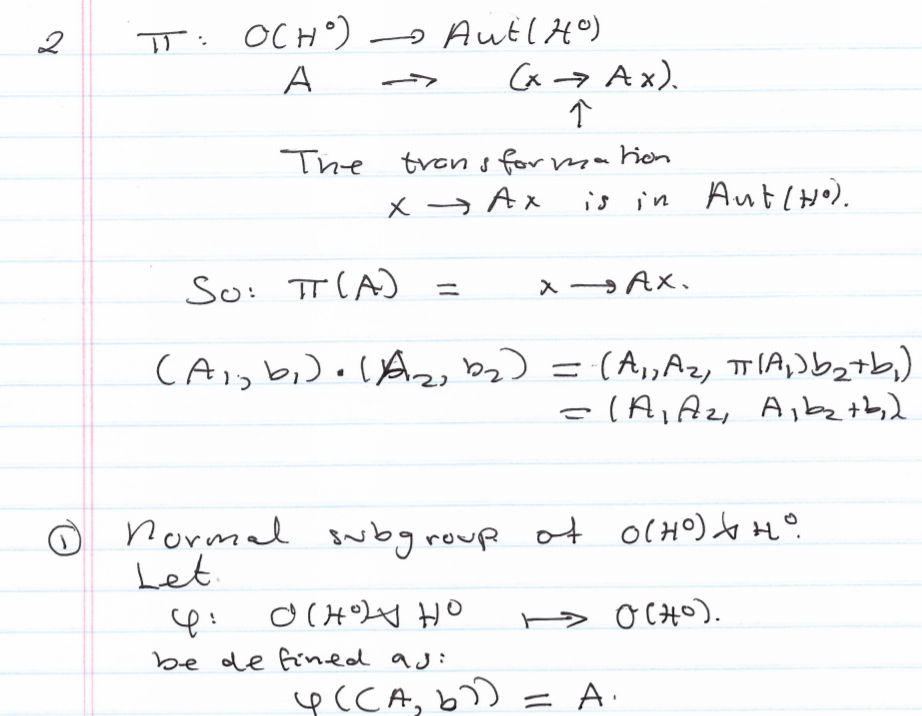 2 π: O(H⁰) → Aut(H⁰)
A → (x → Ax).
↑
The transformation
x → Ax is in Aut(H⁰).
So: π(A) = x → Ax.
(A₁, b₁) · (A₂, b₂) = (A₁, A₂, π(A₁)b₂+b₁)
= (A₁A₂, A₁b₂+b₁)
① Normal subgroup of O(H⁰) ⋊ H⁰.
Let.
φ: O(H⁰) ⋊ H⁰ ↦ O(H⁰).
be defined as:
φ((A, b)) = A.